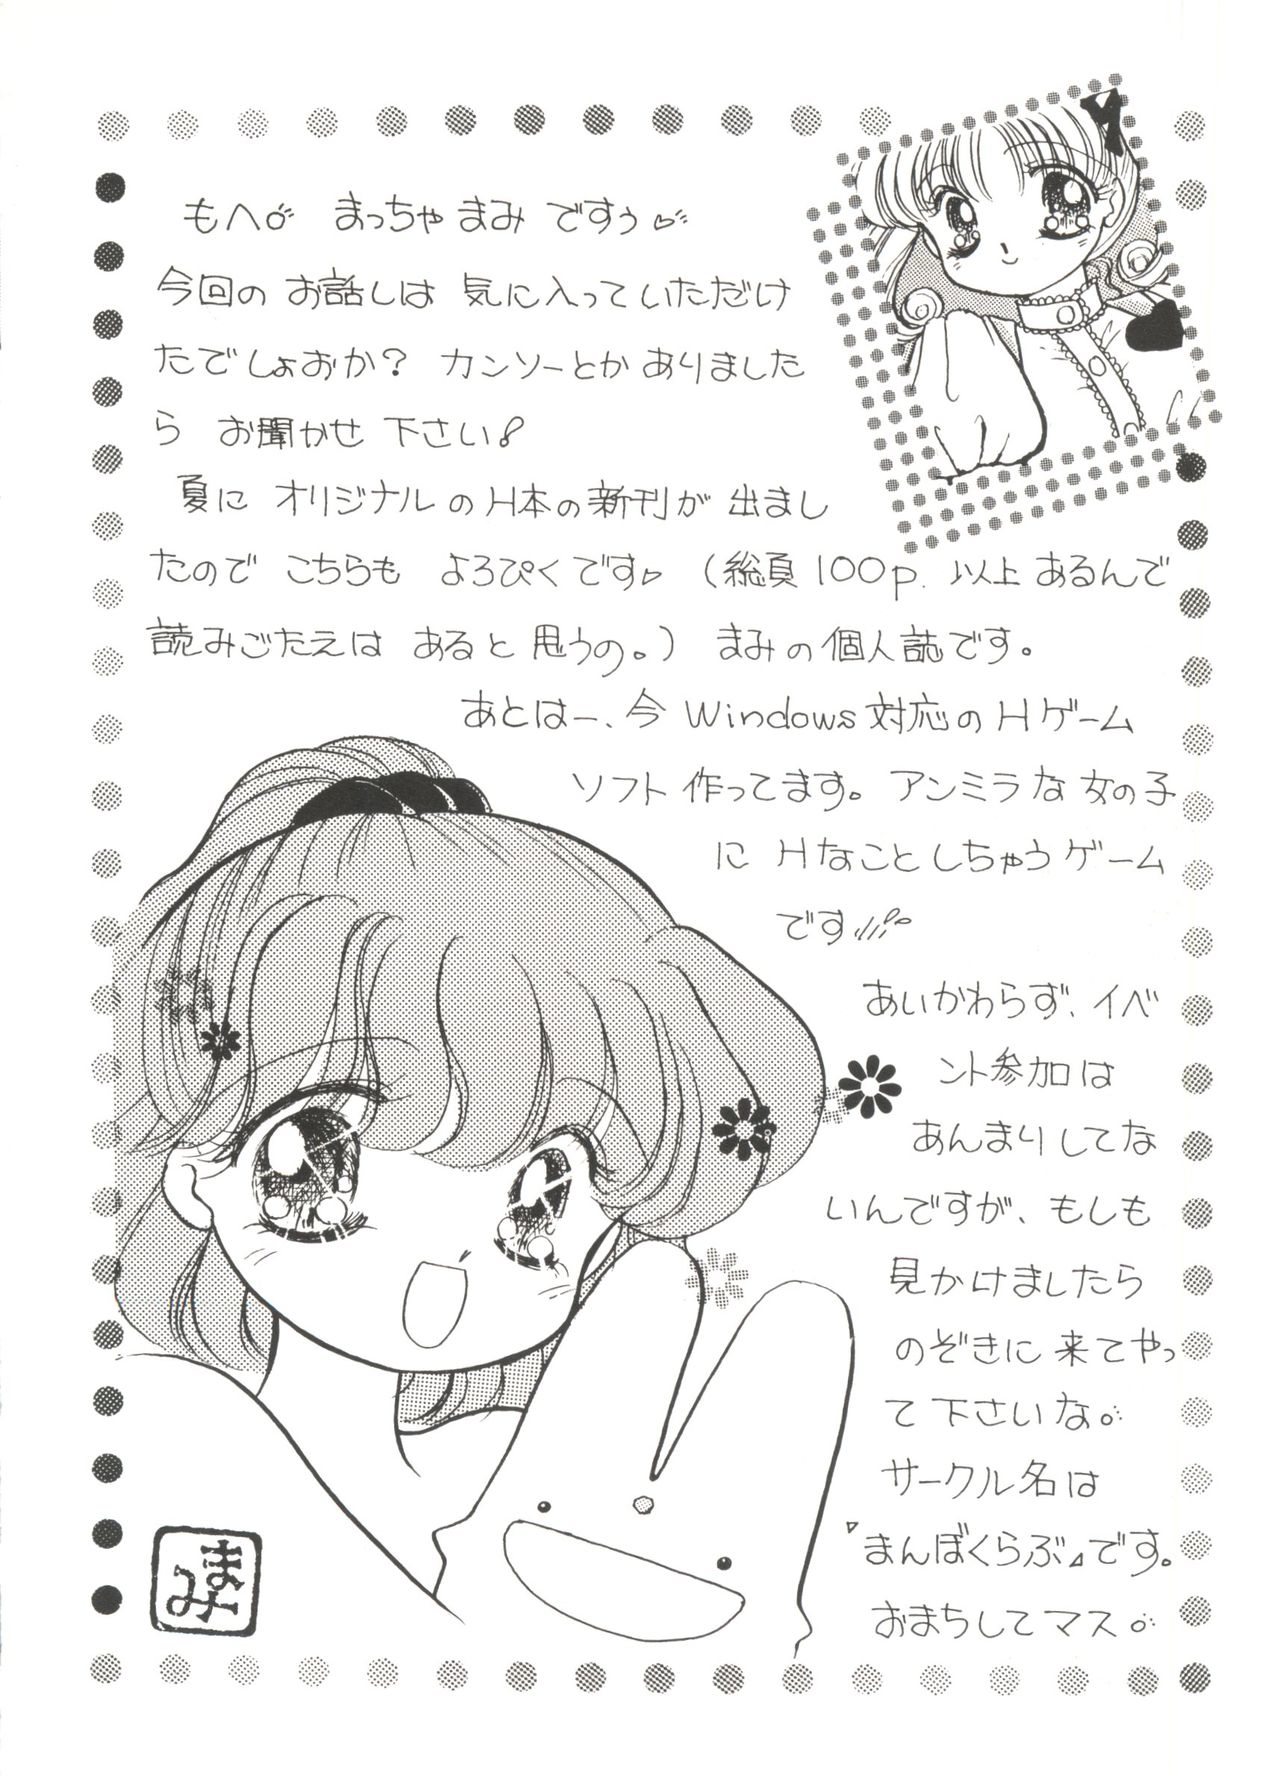 もへ まっちゃまみ ですぅ
今回の お話しは 気に入っていただけ
たでしょおか? カンソーとか ありました
ら お聞かせ 下さい!
夏に オリジナルの H本の新刊が 出まし
たので こちらも よろぴくです (総頁 100p. 以上 あるんで
読みごたえは あると 思うの。) まみの個人誌です。
あとはー、今 Windows 対応の Hゲーム
ソフト 作ってます。アンミラな 女の子
に Hなことしちゃうゲーム
です
あいかわらず、イベ
ント参加は
あんまりしてな
いんですが、もしも
見かけましたら
のぞきに 来てやっ
て 下さいな。
サークル名は
『まんぼくらぶ』です。
おまちしてマス。
まみ